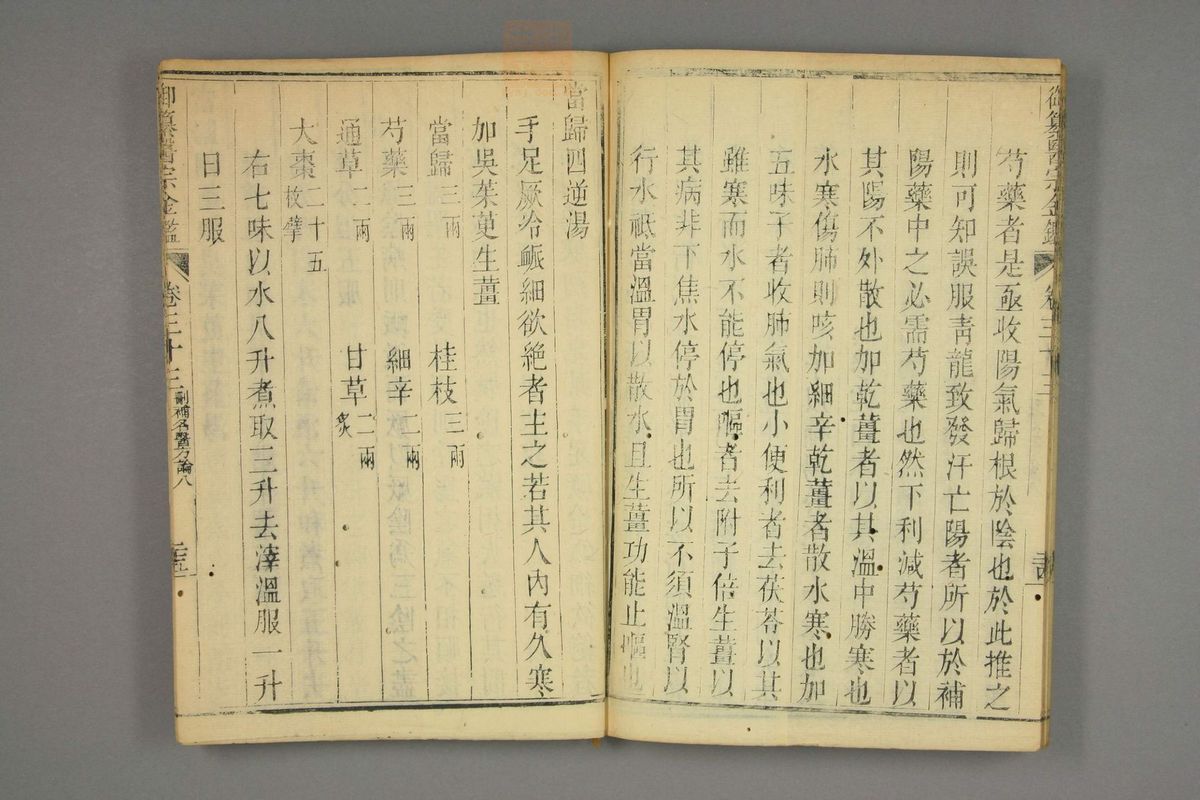 芍藥者是亟收陽氣歸根於陰也於此推之
則可知誤服靑龍致發汗亡陽者所以於補
陽藥中之必需芍藥也然下利減芍藥者以
其陽不外散也加乾薑者以其溫中勝寒也
水寒傷肺則咳加細辛乾薑者散水寒也加
五味子者收肺氣也小便利者去茯苓以其
雖寒而水不能停也嘔者去附子倍生薑以
其病非下焦水停於胃也所以不須溫腎以
行水祗當溫胃以散水且生薑功能止嘔也
當歸四逆湯
手足厥冷脈細欲絕者主之若其人內有久寒
加吳茱萸生薑
當歸三兩 桂枝三兩
芍藥三兩 細辛二兩
通草二兩 甘草二兩炙
大棗二十五枚擘
右七味以水八升煮取三升去滓溫服一升
日三服
御纂醫宗金鑑 卷三十三 刪補名醫方論八